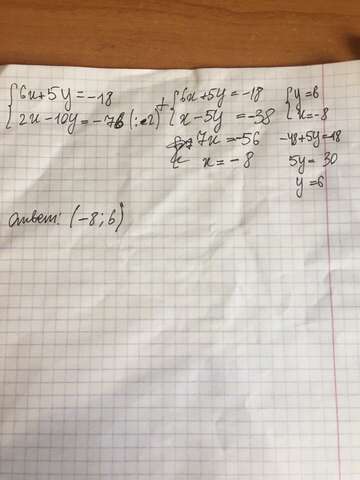 6x+5y=-18
2x-10y=-76 (:2)
+
6x+5y=-18
x-5y=-38
7x=-56
x=-8
y=6
x=-8
-48+5y=-18
5y=30
y=6
ответ: (-8;6)